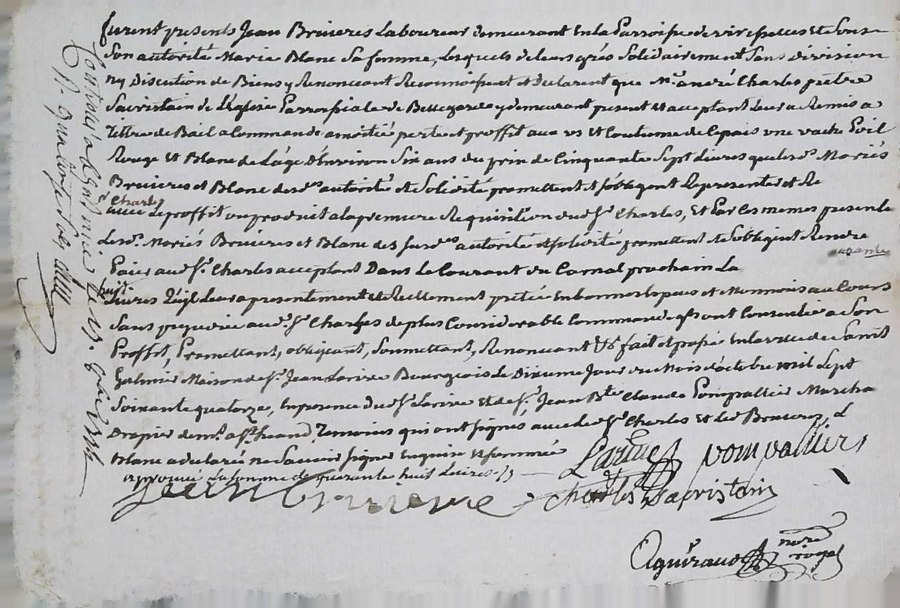 furent presents Jean Bruieres Laboureur demeurant En la Parroisse de virispaces et sous
Son autorité Marie Blanc Sa femme, Lesquels de leurs grés Solidairement Sans Division
Ny Discution de Biens y Renoncant Reconnoissent et declarent que Mre andré Charles prêtre
Sacristain de L'Eglise Parroissiale de Bellegarde y demeurant present et acceptant leur a Remis a
Tittre de Bail a Commande a moitié perte et proffit aux us et Coutume de Ce païs une vache Poil
Rouge et Blanc de L'age d'Environ Six ans du prix de Cinquante Sept Livres que les ds. Mariés
Bruieres et Blanc des ds. autorité et Solidité promettent et s'obligent Representer et Re
Charles
avec Le proffit ou produit a la premiere Requisition du Sr. Charles, Et Par Ces memes presente
Les ds. Mariés Bruieres et Blanc des Sus ds. autorité et solidité promettent et s'obligent Rendre
Païer au d. Sr. Charles acceptant Dans Le Courant du Carnal prochain La quarante
huit
Livres Qu'il Leur a presentement et Reellement pretée En bonnes Especes et Monnois au Cours
Sans au d. Sr. Charles de plus Considerable Commande qu'ils ont Consentie a Son
Proffit, Promettant, obligeant, Soumettant, Renoncant &c fait et passé En la ville de Saint
Galmier Maison de Sr. Jean Larive Bourgeois Le Dixieme Jour du Mois d'octobre mil Sept
Soixante quatorze, En presence du d. Sr. Larive Et de Sr. Jean Bte. Claude Pompallier Marcha
Drapier dem. a St. heand, Temoins qui ont Signés avec le d. Sr. Charles Et led. Bruieres, &
Blanc a declaré ne Savoir signer Enquise et sommée
approuvé La somme de quarante huit Livres
Larive pompallier
Jean bruiere Charles Sacristain
Aguiraud nore royal